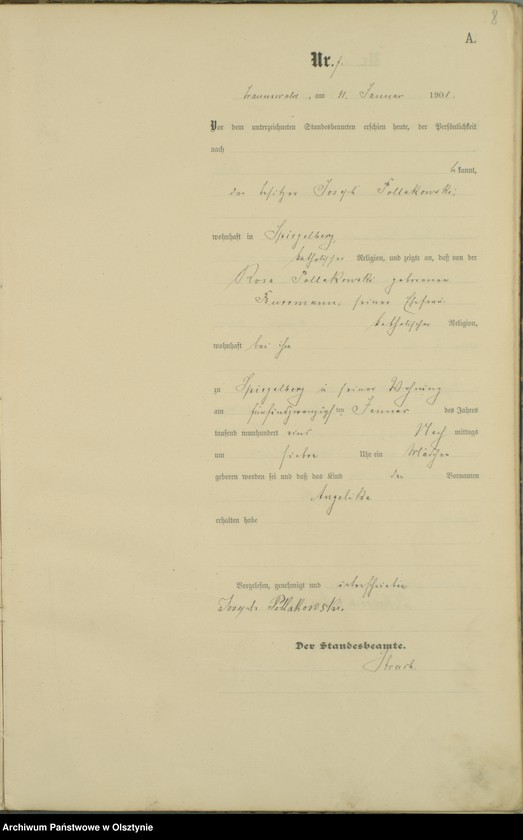 8
A.
Nr. 7.
Januar 1901.
Vor dem unterzeichneten Standesbeamten erschien heute, der Persönlichkeit
nach
bekannt,
der Besitzer Joseph Pollakowski,
wohnhaft in Spiegelberg,
katholischer Religion, und zeigte an, daß von der
Rosa Pollakowski geborenen
seiner Ehefrau
katholischer Religion,
wohnhaft bei ihm
zu Spiegelberg in seiner Wohnung
am ten Januar des Jahres
tausend neunhundert eins Nach mittags
um sieben Uhr ein Mädchen
geboren worden sei und daß das Kind den Vornamen
Angelika
erhalten habe
Vorgelesen, genehmigt und unterschrieben
Joseph Pollakowski.
Der Standesbeamte.
Archiwum Państwowe w Olsztynie